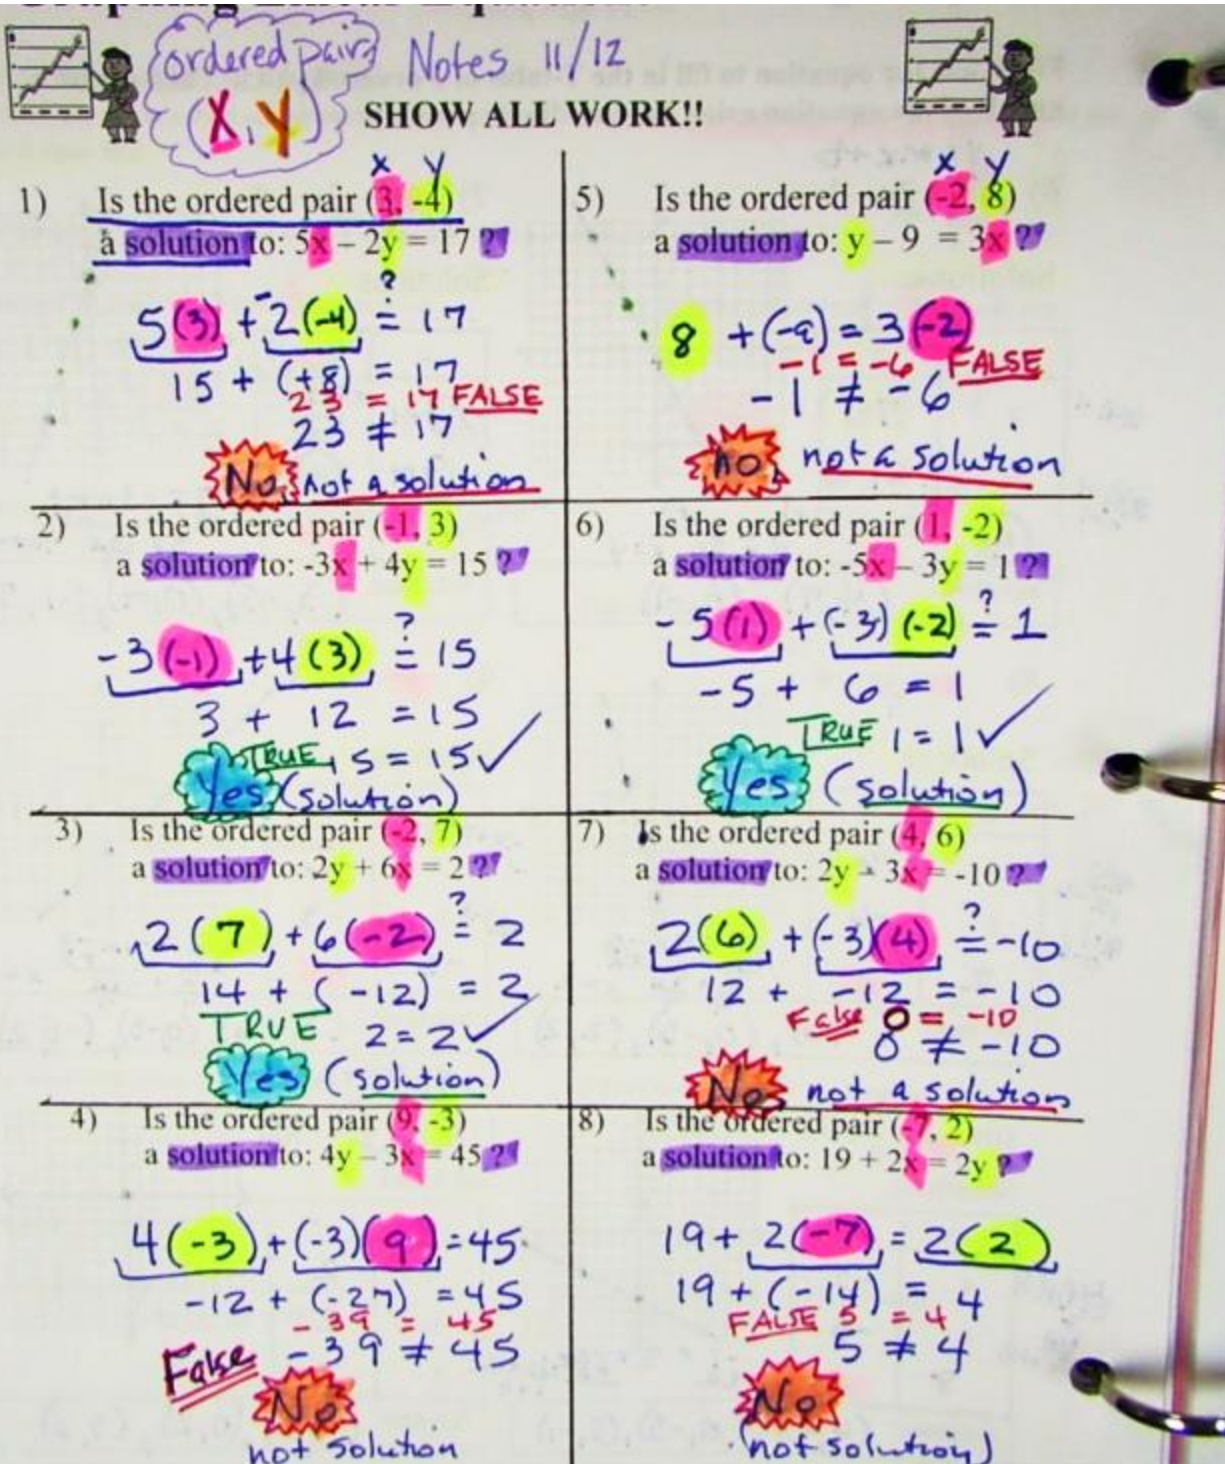 ordered pairs Notes 11/12
(X, Y) SHOW ALL WORK!!
x y
1) Is the ordered pair (3, -4)
a solution to: 5x – 2y = 17 ?
?
5(3) + -2(-4) = 17
15 + (+8) = 17
23 = 17 FALSE
23 ≠ 17
No, not a solution
2) Is the ordered pair (-1, 3)
a solution to: -3x + 4y = 15 ?
?
-3(-1) + 4(3) = 15
3 + 12 = 15
TRUE 15 = 15 ✓
Yes (solution)
3) Is the ordered pair (-2, 7)
a solution to: 2y + 6x = 2 ?
?
2(7) + 6(-2) = 2
14 + (-12) = 2
TRUE 2 = 2 ✓
Yes (solution)
4) Is the ordered pair (9, -3)
a solution to: 4y – 3x = 45 ?
4(-3) + (-3)(9) = 45
-12 + (-27) = 45
-39 = 45
False -39 ≠ 45
No
not solution
x y
5) Is the ordered pair (-2, 8)
a solution to: y – 9 = 3x ?
8 + (-9) = 3(-2)
-1 = -6 FALSE
-1 ≠ -6
no, not a solution
6) Is the ordered pair (1, -2)
a solution to: -5x – 3y = 1 ?
?
-5(1) + (-3)(-2) = 1
-5 + 6 = 1
TRUE 1 = 1 ✓
Yes (solution)
7) Is the ordered pair (4, 6)
a solution to: 2y - 3x = -10 ?
?
2(6) + (-3)(4) = -10
12 + -12 = -10
False 0 = -10
0 ≠ -10
No, not a solution
8) Is the ordered pair (-7, 2)
a solution to: 19 + 2x = 2y ?
19 + 2(-7) = 2(2)
19 + (-14) = 4
FALSE 5 = 4
5 ≠ 4
No
(not solution)